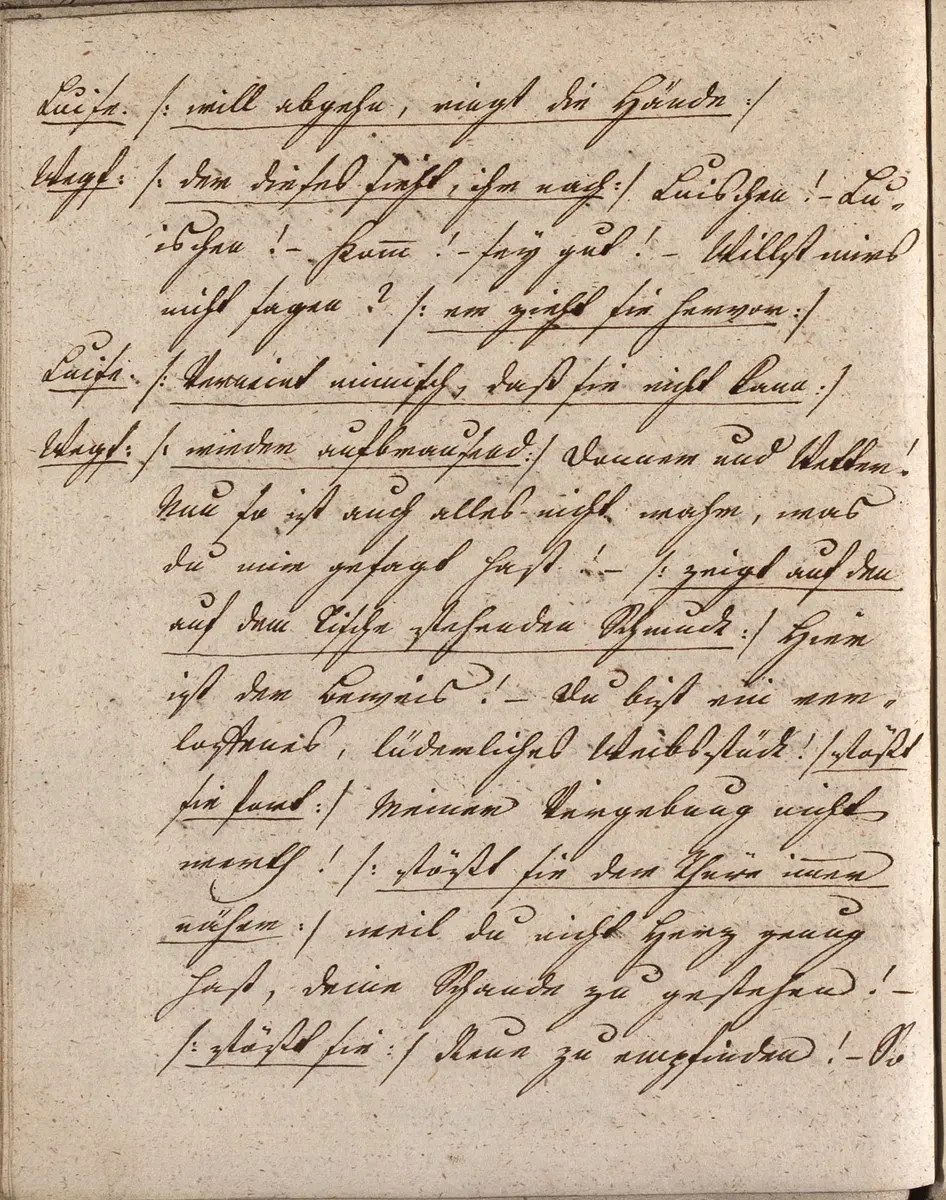 Luise. /: will abgehn, ringt die Hände :/
Wegf: /: der dieses sieht, ihr nach :/ Luischen! – Lu-
ischen! – Kom̅! – sey gut! – Willst mirs
nicht sagen? /: er zieht sie hervor :/
Luise. /: Verneint mimisch, daß sie nicht kann :/
Wegf: /: wieder aufbrausend :/ Donner und Wetter!
Nun so ist auch alles nicht wahr, was
du mir gesagt hast! – /: zeigt auf den
auf dem Tische stehenden Schmuck :/ Hier
ist der Beweis! – Du bist ein ver-
loffenes, lüderliches Weibsstück! /: stößt
sie fort :/ Meiner Vergebung nicht
werth! /: stößt sie der Thüre im̅er
näher :/ weil du nicht Herz genug
hast, deine Schande zu gestehen! –
/: stößt sie :/ Reue zu empfinden! – So